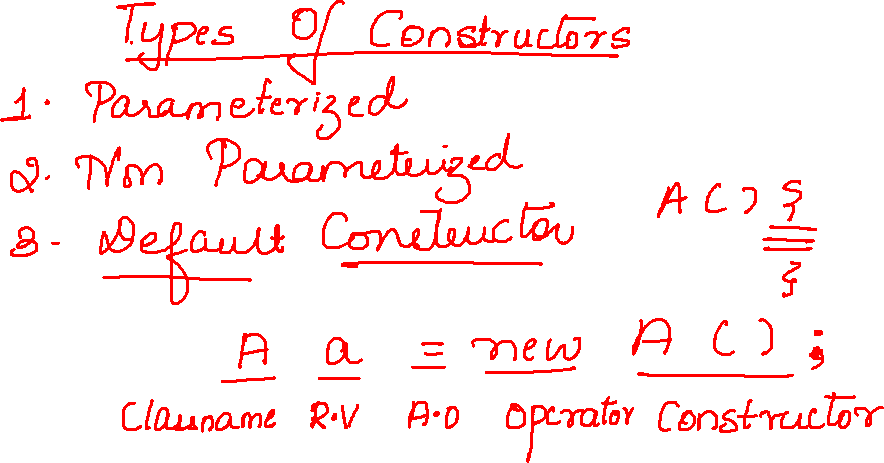 Types Of Constructors
1. Parameterized
2. Non Parameterized
3- Default Constructor
A() {
}
A a = new A();
Classname R.V A.O operator Constructor